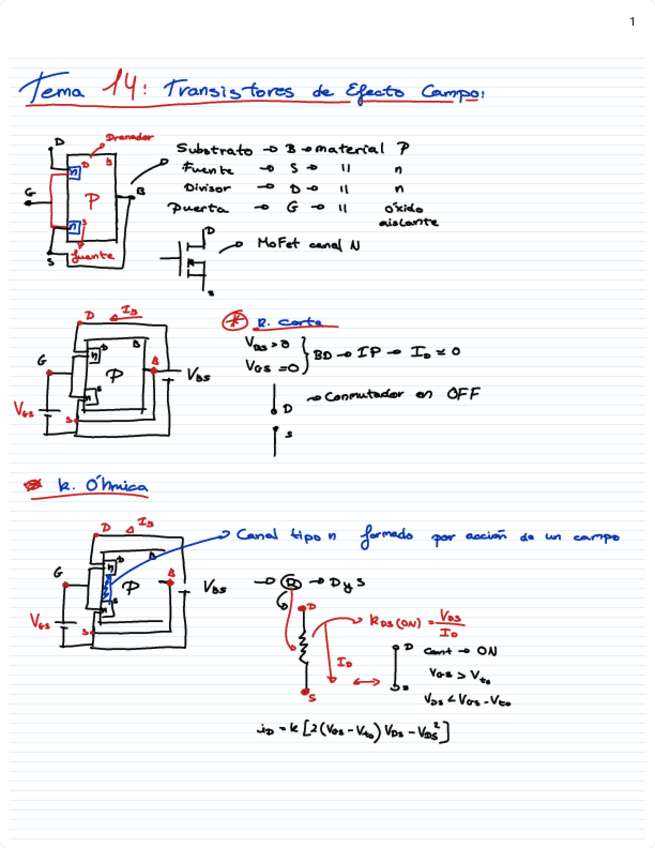 1
Tema 14: Transistores de Efecto Campo:
D
Drenador
D
B
n
G
P
B
n
S
S
fuente
Substrato → B → material P
Fuente → S → " n
Divisor → D → " n
Puerta → G → " óxido
aislante
D
S
MoFet canal N
D
I_D
G
n
D
B
P
B
V_DS
V_GS
S
S
R. Corte
V_DS > 0
V_GS = 0
BD → IP → I_D ≈ 0
D
S
→ Conmutador en OFF
R. Óhmica
D
I_D
G
n
D
B
P
B
V_DS
V_GS
S
S
n
→ Canal tipo n formado por acción de un campo
→ R → D y S
D
R_DS(ON) = V_DS / I_D
I_D
S
D
S
Cont → ON
V_GS > V_to
V_DS < V_GS - V_to
i_D = k [2(V_GS - V_to) V_DS - V_DS²]